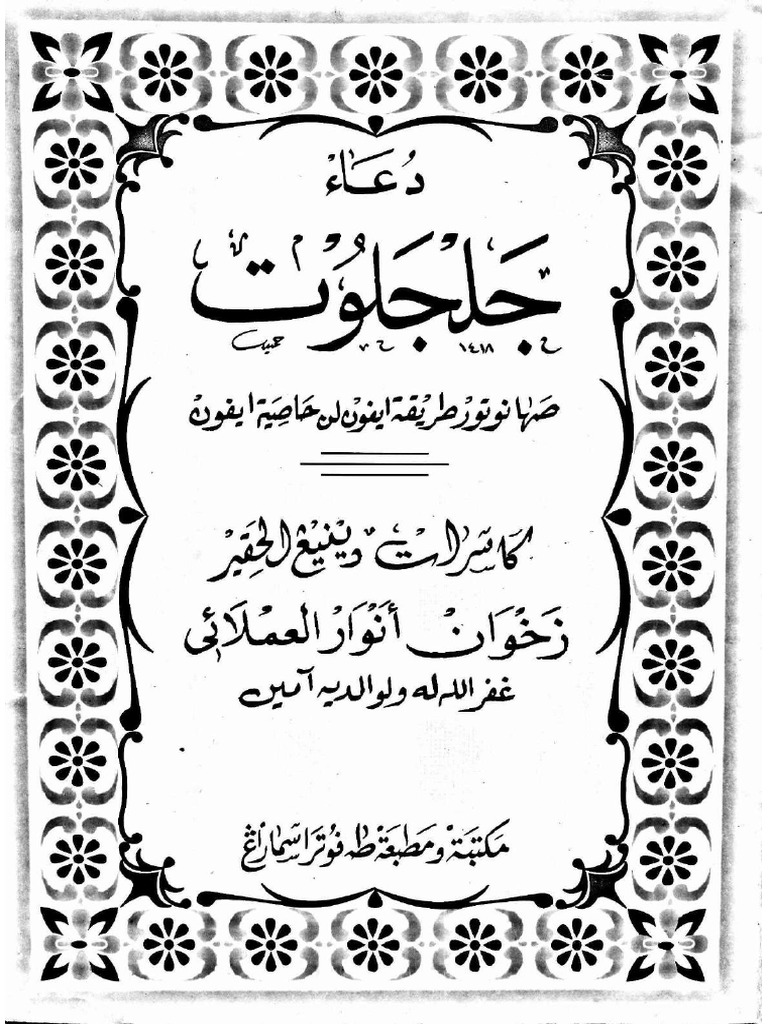 دُعَاءْ
جَلْجَلُوْتْ
١٤١٨
صَهَا نوتور طريقة ايفون لن خاصية ايفون
كاسرات دينيڠ الحَقِيْر
زَخْوَانْ أَنْوَارْ العملائي
غفر الله له ولوالديه آمين
مكتبة ومطبعة طه فوترا سمارڠ